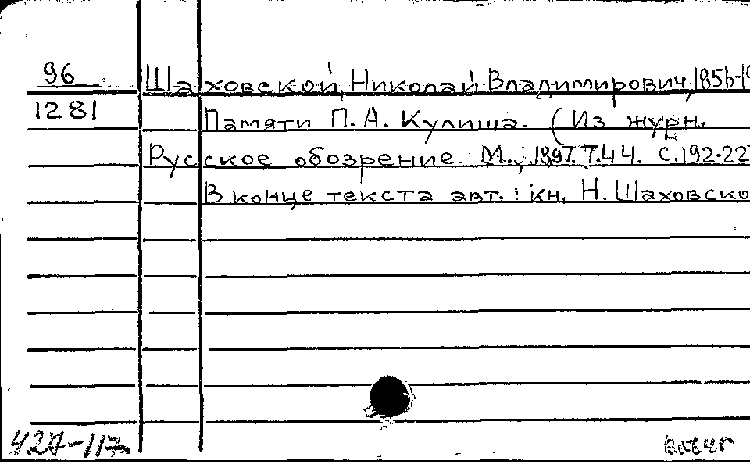 96
1281
Шаховской, Николай Владимирович, 1856-19
Памяти П. А. Кулиша. (Из журн.
Русское обозрение. М., 1897. Т. 44. С. 192-22
В конце текста авт.: кн. Н. Шаховско
427-117